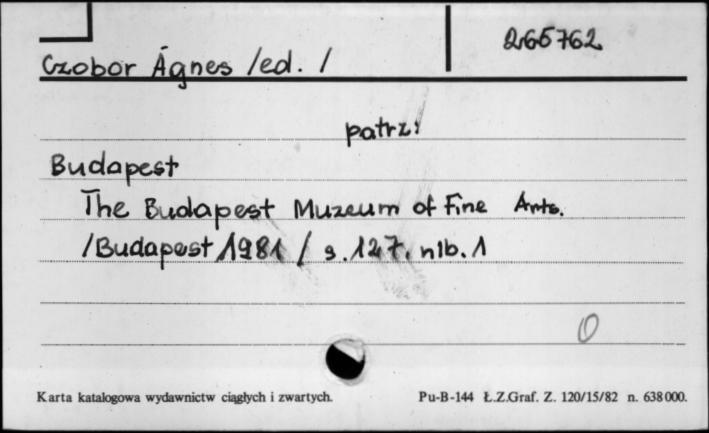 265762
Czobor Ágnes /ed. /
patrz:
Budapest
The Budapest Muzeum of Fine Arts.
/Budapest 1981 / s. 127. nlb. 1
0
Karta katalogowa wydawnictw ciągłych i zwartych. Pu-B-144 Ł.Z.Graf. Z. 120/15/82 n. 638000.